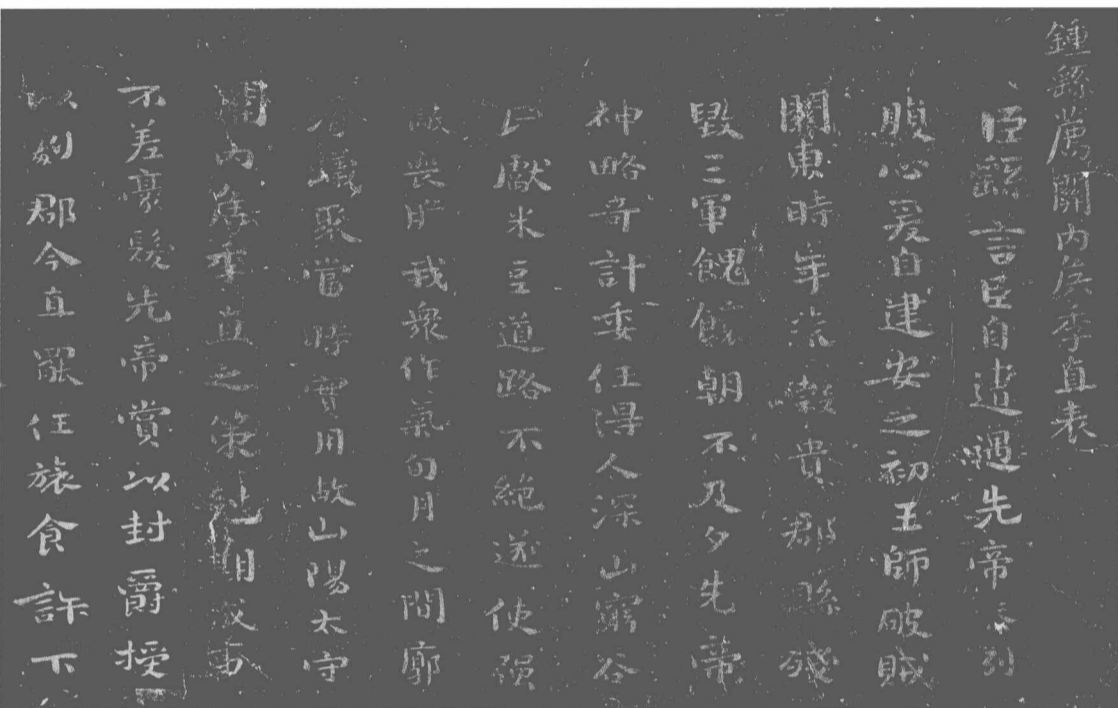 鍾繇薦關內侯季直表
臣繇言臣自遭遇先帝忝列
腹心爰自建安之初王師破賊
關東時年荒穀貴郡縣殘
毀三軍餽饟朝不及夕先帝
神略奇計委任得人深山窮谷
民獻米豆道路不絕遂使强
敵喪膽我眾作氣旬月之間廓
清蟻聚當時實用故山陽太守
關內侯季直之策剋期成事
不差豪髮先帝賞以封爵授
以劇郡今直罷任旅食許下